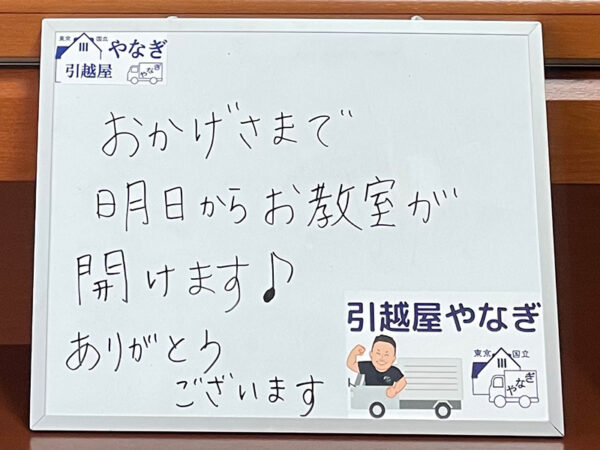 東京 国立 やなぎ
引越屋 やなぎ
おかげさまで
明日からお教室が
開けます♪
ありがとう
ございます
引越屋やなぎ
東京 国立
やなぎ